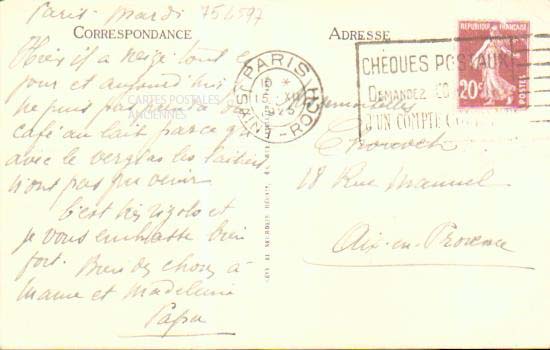 Paris Mardi 756597
CORRESPONDANCE
Hier il a neigé tout le
jour et aujourd'hui
ne puis pas
café au lait parce que
avec le verglas les laitiers
n'ont pas pu venir
C'est très rigolo et
je vous embrasse bien
fort. Bien des choses à
Mame et Madeleine
Papa
CARTES POSTALES
ANCIENNES
ADRESSE
PARIS XI
15 XII
25
R. ST ANT-ROCH
CHÈQUES POSTAUX
DEMANDEZ
D'UN COMPTE
REPUBLIQUE FRANÇAISE
20c
POSTES
18 Rue Manuel
Aix-en-Provence